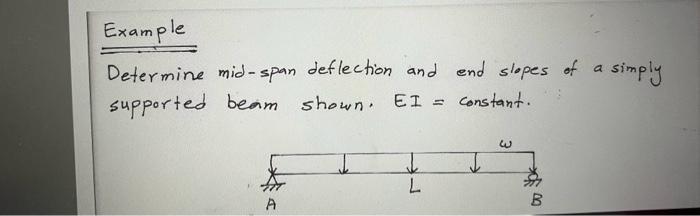 Example
Determine mid-span deflection and end slopes of a simply
supported beam shown. EI = constant.
ω
L
A
B